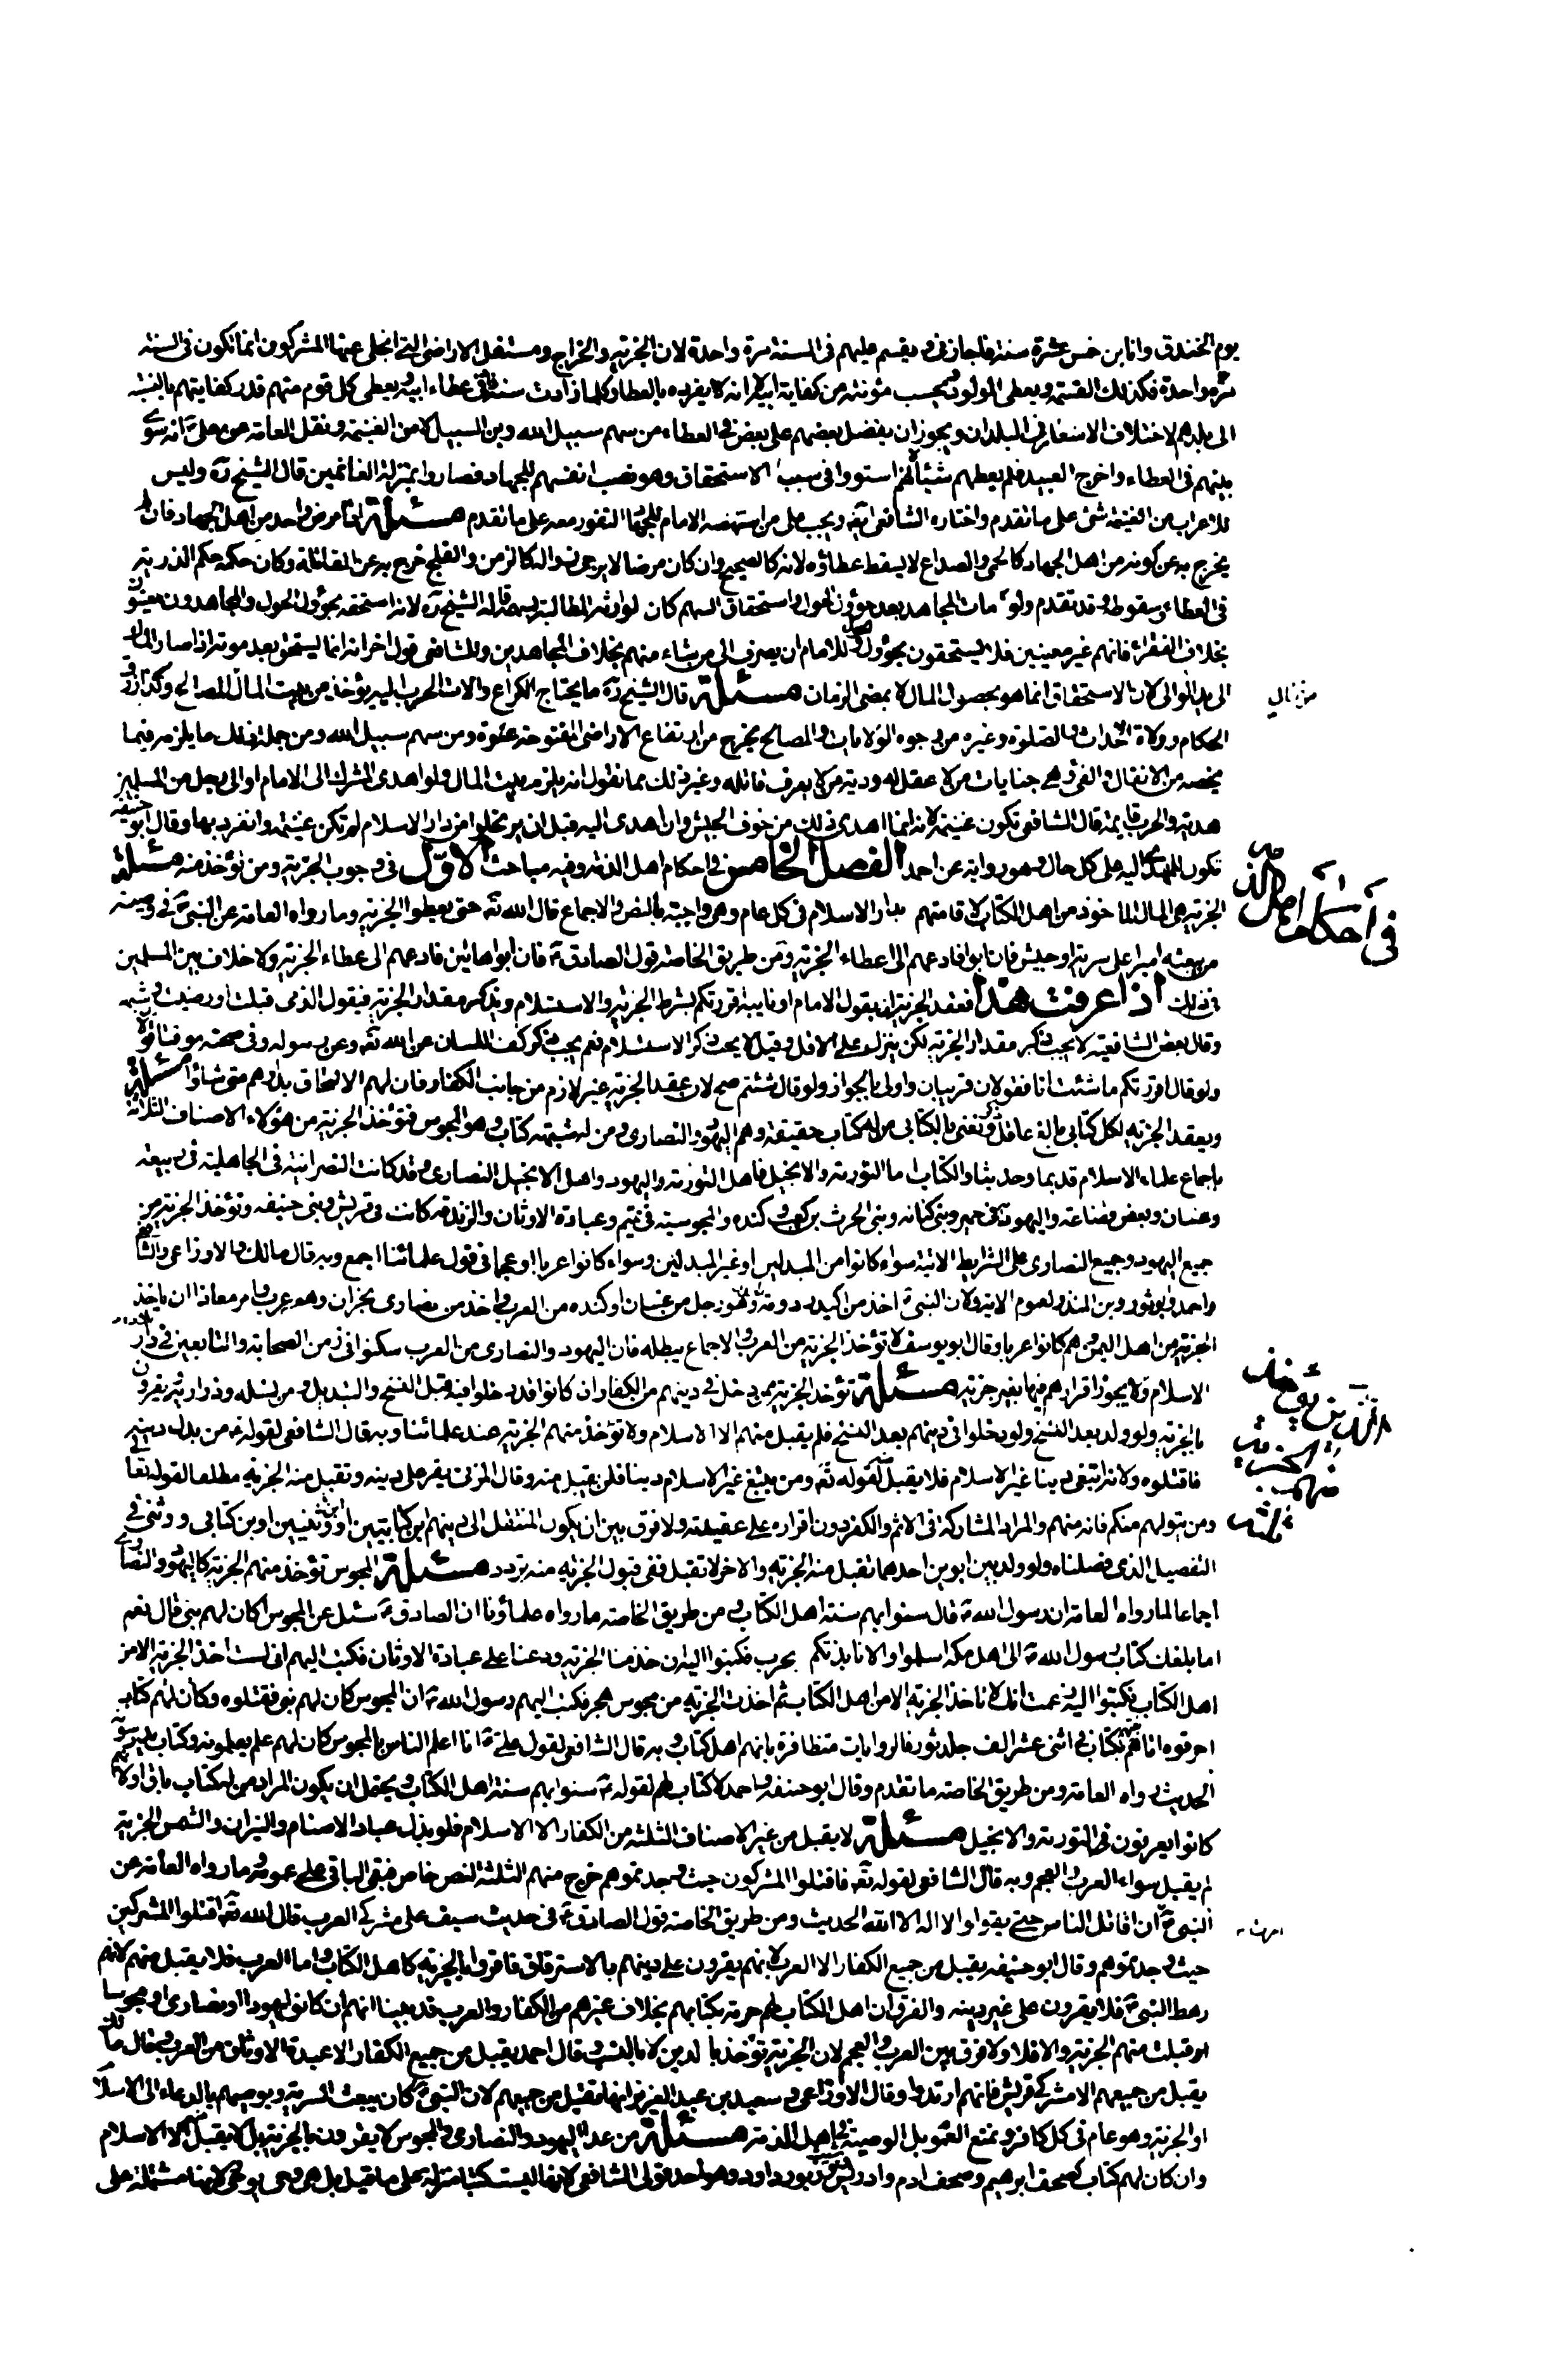 يوم الخندق وانا ابن خمس عشرة سنة فاجازنى ويقسم عليهم فى السنة مرة واحدة لان الجزية والخراج ومستغل الاراضى التى انجلى عنها المشركون انما تكون فى السنة
مرة واحدة فكذلك القسمة ويعطى المولود ويحسب مؤنته من كفاية ابيه الا انه لا يفرده بالعطاء وكلما زادت سنه زاد فى عطاء ابيه ويعطى كل قوم منهم قدر كفايتهم بالنسبة
الى بلدهم لاختلاف الاسعار فى البلدان ويجوز ان يفضل بعضهم على بعض فى العطاء من سهم سبيل الله وابن السبيل لا من الغنيمة ونقل العامة عن على ع انه سوى
بينهم فى العطاء واخرج العبيد فلم يعطهم شيئا لانهم استووا فى سبب الاستحقاق وهو نصب انفسهم للجهاد فصاروا بمنزلة الغانمين قال الشيخ ره وليس
للاعراب من الغنيمة شئ على ما تقدم واختاره الشافعى ايضا ويجب على من استنهضه الامام للجهاد النفور معه على ما تقدم مسئلة اذا مرض واحد من اهل الجهاد فان لم
يخرج به عن كونه من اهل الجهاد كالحمى والصداع لا يسقط عطاؤه لانه كالصحيح وان كان مرضا لا يرجى زواله كالزمن والفلج خرج به عن المقاتلة وكان حكمه حكم الذرية
فى العطاء وسقوطه وقد تقدم ولو مات المجاهد بعد حؤول الحول واستحقاق السهم كان لوارثه المطالبة بسهمه قاله الشيخ ره لانه استحقه بحؤول الحول والمجاهدون معينون
بخلاف الفقراء فانهم غير معينين فلا يستحقون بحؤول الحول للامام ان يصرف الى من شاء منهم بخلاف المجاهدين وللشافعى قول اخر انه انما يستحق بعد موته اذا صار المال
الى يد الوالى لان الاستحقاق انما هو بحصول المال لا بمضى الزمان مسئلة قال الشيخ ره ما يحتاج الكراع والات الحرب اليه يؤخذ من بيت المال المصالح وكذا رزق
الحكام وولاة الاحداث والصلوة وغيره من وجوه الولايات والمصالح يخرج من ارتفاع الاراضى المفتوحة عنوة ومن سهم سبيل الله ومن جملة ذلك ما يلزمه فيما
يخصه من الانفال والفئ وهى جنايات من لا عقل له ودية من لا يعرف قاتله وغير ذلك مما نقول انه يلزم بيت المال ولو اهدى المشرك الى الامام او الى رجل من المسلمين
هدية والحرب قايمة قال الشافعى تكون غنيمة لانه انما اهدى ذلك من خوف الجيش وان اهدى اليه قبل ان يرتحلوا من دار الاسلام لم تكن غنيمة وانفرد بها وقال ابو حنيفة
تكون للمهدى اليه على كل حال وهو رواية عن احمد الفصل الخامس فى احكام اهل الذمة وفيه مباحث الاول فى وجوب الجزية ومن تؤخذ منه مسئلة
الجزية هى المال الماخوذ من اهل الكتاب لاقامتهم بدار الاسلام فى كل عام وهى واجبة بالنص والاجماع قال الله تع حتى يعطوا الجزية وما رواه العامة عن النبى ص فى وصيته
من يبعثه اميرا على سرية او جيش فان ابوا فادعهم الى اعطاء الجزية ومن طريق الخاصة قول الصادق ع فان ابوا هاتين فادعهم الى عطاء الجزية ولا خلاف بين المسلمين
فى ذلك اذا عرفت هذا فعقد الجزية ان يقول الامام او نايبه اقررتكم بشرط الجزية والاستسلام ويذكر مقدار الجزية فيقول الذمى قبلت او رضيت وشبهه
وقال بعض الشافعية لا يجب ذكر مقدار الجزية لكن ينزل على الاقل وقيل لا يجب ذكر الاستسلام نعم يجب ذكر كف اللسان عن الله تع وعن رسوله وفى صحته موقتا قولان
ولو قال اقررتكم ما شئت انا فقولان قريبان واولى بالجواز ولو قال شئتم صح لان عقد الجزية غير لازم من جانب الكفار فان لهم الالتحاق بدارهم متى شاؤا مسئلة
ويعقد الجزية لكل كتابى بالغ عاقل ونعنى بالكتابى من له كتاب حقيقة وهم اليهود والنصارى ومن له شبهة كتاب وهو المجوس فتؤخذ الجزية من هؤلاء الاصناف الثلاثة
باجماع علماء الاسلام قديما وحديثا والكتاب اما التورية والانجيل فاهل التورية واليهود واهل الانجيل النصارى وقد كانت النصرانية فى الجاهلية فى ربيعة
وغسان وبعض قضاعة واليهود فى حمير وبنى كنانه وبنى الحرث بن كعب وكنده والمجوسية فى تميم وعبادة الاوثان والزندقة كانت فى قريش وبنى حنيفه وتؤخذ الجزية من
جميع اليهود وجميع النصارى على الشرايط الاتية سواء كانوا من المبدلين او غير المبدلين وسواء كانوا عربا او عجما فى قول علمائنا اجمع وبه قال مالك والاوزاعى والشافعى
واحمد وابو ثور وابن المنذر لعموم الاية ولان النبى ص اخذ من اكيدر دومة وهو رجل من غسان او كنده من العرب واخذ من نصارى نجران وهو عرب وامر معاذا ان ياخذ
الجزية من اهل اليمن وهم كانوا عربا وقال ابو يوسف لا تؤخذ الجزية من العرب والاجماع يبطله فان اليهود والنصارى من العرب سكنوا فى زمن الصحابة والتابعين فى دار
الاسلام ولا يجوز اقرارهم فيها بغير جزية مسئلة تؤخذ الجزية ممن دخل فى دينهم من الكفار ان كانوا قد دخلوا فيه قبل النسخ والتبديل ومن نسله وذراريه ويقرون
بالجزية ولو ولد بعد النسخ ولو دخلوا فى دينهم بعد النسخ فلم يقبل منهم الا الاسلام ولا تؤخذ منهم الجزية عند علمائنا وبه قال الشافعى لقوله ع من بدل دينه
فاقتلوه ولانه ابتغى دينا غير الاسلام فلا يقبل لقوله تع ومن يبتغ غير الاسلام دينا فلن يقبل منه وقال المزنى يقر على دينه وتقبل منه الجزية مطلقا لقوله تعا
ومن يتولهم منكم فانه منهم والمراد المشاركة فى الاثم والكفر دون اقراره على عقيدته ولا فرق بين ان يكون المنتقل الى دينهم ابن كتابيين او وثنيين او ابن كتابى ووثنى فى
التفصيل الذى فصلناه ولو ولد بين ابوين احدهما تقبل منه الجزية والاخر لا تقبل ففى قبول الجزية منه تردد مسئلة المجوس تؤخذ منهم الجزية كاليهود والنصارى
اجماعا لما رواه العامة ان رسول الله ص قال سنوا بهم سنة اهل الكتاب ومن طريق الخاصة ما رواه علماؤنا ان الصادق ع سئل عن المجوس اكان لهم نبى قال نعم
اما بلغك كتاب رسول الله ص الى اهل مكة اسلموا والا نابذتكم بحرب فكتبوا اليه ان خذ منا الجزية ودعنا على عبادة الاوثان فكتب اليهم انى لست اخذ الجزية الا من
اهل الكتاب فكتبوا اليه زعمت انك لا تاخذ الجزية الا من اهل الكتاب ثم اخذت الجزية من مجوس هجر فكتب اليهم رسول الله ص ان المجوس كان لهم نبى فقتلوه وكان لهم كتاب
احرقوه اتاهم نبيهم بكتاب فى اثنى عشر الف جلد ثور فالروايات متظافرة بانهم اهل كتاب وبه قال الشافعى لقول على ع انا اعلم الناس بالمجوس كان لهم علم يعلمونه وكتاب يدرسونه
الحديث رواه العامة ومن طريق الخاصة ما تقدم وقال ابو حنيفة واحمد لا كتاب لهم لقوله ع سنوا بهم سنة اهل الكتاب ويحتمل ان يكون المراد من له كتاب باق او لانهم
كانوا يعرفون فى التورية والانجيل مسئلة لا يقبل من غير الاصناف الثلثة من الكفار الا الاسلام فلو بذل عباد الاصنام والنيران والشمس الجزية
لم يقبل سواء العرب والعجم وبه قال الشافعى لقوله تع فاقتلوا المشركين حيث وجدتموهم خرج منهم الثلثة لنص خاص فبقى الباقى على عمومه وما رواه العامة عن
النبى ص ان اقاتل الناس حتى يقولوا لا اله الا الله الحديث ومن طريق الخاصة قول الصادق ع فى حديث سيف على مشركى العرب قال الله تع اقتلوا المشركين
حيث وجدتموهم وقال ابو حنيفه يقبل من جميع الكفار الا العرب لانهم يقرون على دينهم بالاسترقاق فاقروا بالجزية كاهل الكتاب واما العرب فلا يقبل منهم لانهم
رهط النبى ص فلا يقرون على غير دينه والفرق ان اهل الكتاب لهم حرمة بكتابهم بخلاف غيرهم من الكفار والعرب قد بينا انهم ان كانوا يهودا او نصارى او مجوسا
قبلت منهم الجزية والا فلا ولا فرق بين العرب والعجم لان الجزية تؤخذ بالدين لا بالنسب وقال احمد يقبل من جميع الكفار الا عبدة الاوثان من العرب وقال مالك
يقبل من جميعهم الا مشركى قريش فانهم ارتدوا وقال الاوزاعى وسعيد بن عبد العزيز انها تقبل من جميعهم لان النبى ص كان يبعث السرية ويوصيهم بالدعاء الى الاسلام
او الجزية وهو عام فى كل كافر ونمنع العموم بل الوصية فى اهل الذمة مسئلة من عدا اليهود والنصارى والمجوس لا يقرون بالجزية بل لا يقبل الا الاسلام
وان كان لهم كتاب كصحف ابرهيم وصحف ادم وادريس وزبور داود وهو احد قولى الشافعى لانها ليست كتبا منزلة على ما قيل بل هى وحى يوحى ولانها مشتملة على
فى احكام اهل الذمة